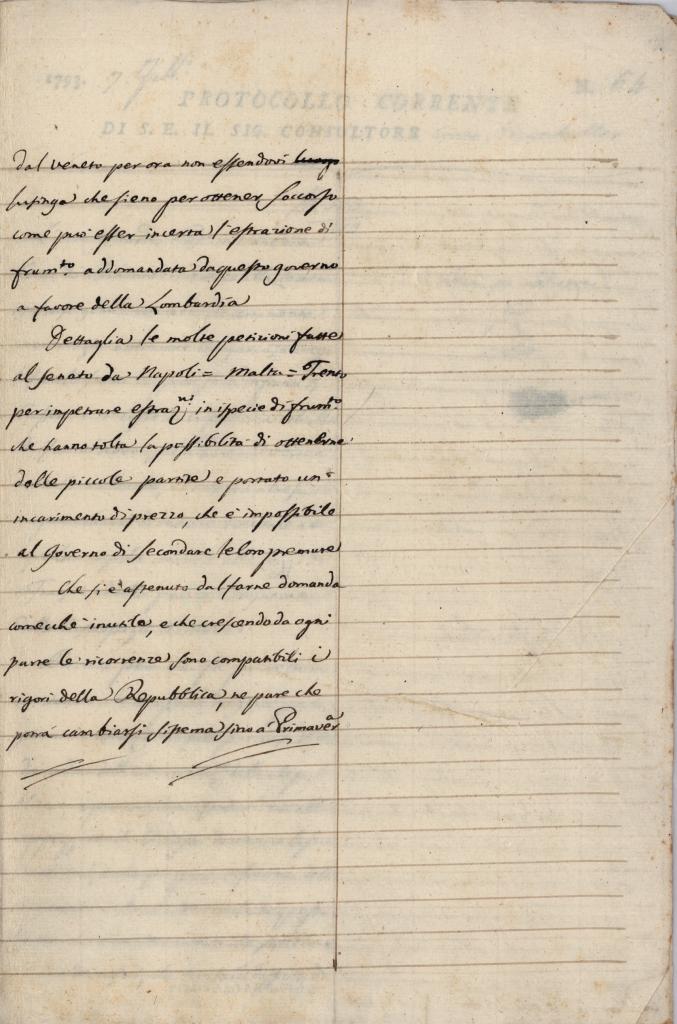 dal veneto per ora non essendovi luogo
lusinga che sieno per ottener soccorso
come può esser incerta l'estrazione di
frum.to addomandata da questo governo
a favore della Lombardia
Dettaglia le molte petizioni fatte
al senato da Napoli = Malta = Trento
per impetrare estraz.ni in ispecie di frum.to
che hanno tolta la possibilità di ottenerne
delle piccole partite e portato un
incarimento di prezzo, che è impossibile
al Governo di secondare le loro premure
Che si è astenuto dal farne domanda
comecchè inutile, e che crescendo da ogni
parte le ricorrenze sono compatibili i
rigori della Repubblica, ne pare che
potrà cambiarsi sistema sino a Primavera
1793. 7
PROTOCOLLO CORRENTE
N. 64
DI S. E. IL SIG. CONSULTORE